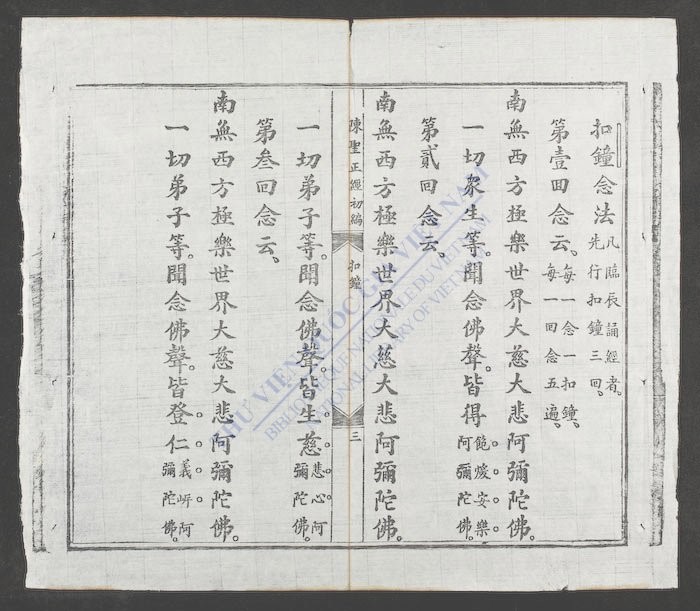 扣鐘念法凡臨辰誦經者。先行扣鐘三回。
第壹回念云、每一念一扣鐘、每一回念五遍、
南無西方極樂世界大慈大悲阿彌陀佛。
一切衆生等。聞念佛聲。皆得飽煖安樂。阿彌陀佛。
第貳回念云、
南無西方極樂世界大慈大悲阿彌陀佛。
陳聖正經初編 扣鐘 三
一切弟子等。聞念佛聲。皆生慈悲心。阿彌陀佛。
第叁回念云、
南無西方極樂世界大慈大悲阿彌陀佛。
一切弟子等。聞念佛聲。皆登仁義岸。阿彌陀佛。
THƯ VIỆN QUỐC GIA VIỆT NAM
BIBLIOTHÈQUE NATIONALE DU VIETNAM
NATIONAL LIBRARY OF VIETNAM